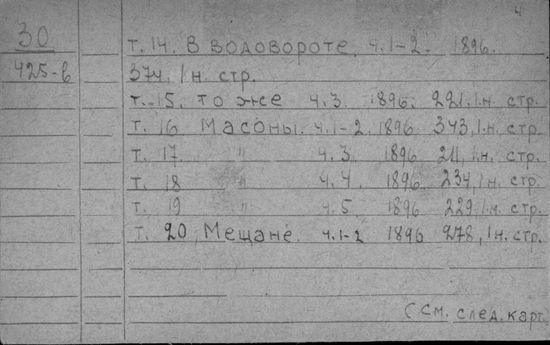 4
30
425-в
т. 14. В водовороте. ч.1-2. 1896.
374, 1 н. стр.
т. 15. то же ч.3. 1896. 221, 1 н. стр.
т. 16 Масоны. ч.1-2. 1896 343, 1 н. стр.
т. 17 " ч.3 1896 211, 1 н. стр.
т. 18 " ч.4. 1896. 234, 1 н. стр.
т. 19 " ч.5. 1896 229, 1 н. стр.
т. 20, Мещане. ч.1-2 1896 278, 1 н. стр.
(см. след. карт.